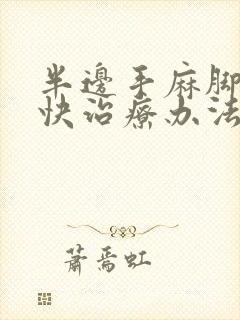 半邊手麻脚
快治療办法
蕭焉虹